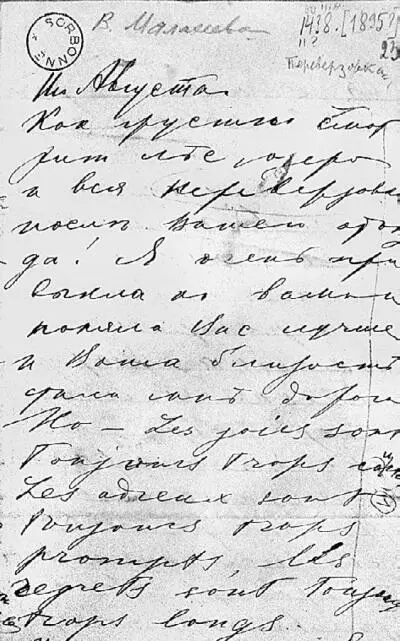 SORBONNE
В. Малашева
1438. [1895?]
Переверзовка,
III Августа
Как грустно смот
рит лес, озеро
и вся Переверзовка
после Вашего отъез
да! Я очень при
выкла к вам и
поняла Вас лучше
и Ваша близость
стала мне дорога
Но – Les joies sont
Toujours trops
Les adieux sont
toujours trops
prompts, les
regrets sont toujours
trops longs.